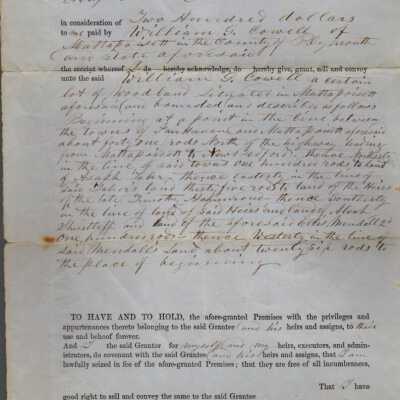 in consideration of Two Hundred dollars
to me paid by William G. Cowell of
Mattapoisett in the County of Plymouth
and state aforesaid
the receipt whereof I do hereby acknowledge, do hereby give, grant, sell and convey
unto the said William G. Cowell a certain
lot of woodland situated in Mattapoisett
aforesaid and bounded and described as follows
Beginning at a point in the line between
the towns of Fairhaven and Mattapoisett aforesaid
about forty one rods North of the highway leading
from Mattapoisett to New Bedford, thence Northerly
in the line of said towns one hundred rods to land
of Taber, thence easterly in the line of
said Taber's land thirty five rods to land of the Heirs
of the late Timothy Hammond thence southerly
in the line of land of said Heirs and land of
Shurtleff and land of the aforesaid Mendall 2d
One hundred rods thence Westerly in the line of
said Mendall's Land about twenty six rods to
the place of beginning
TO HAVE AND TO HOLD, the afore-granted Premises with the privileges and
appurtenances thereto belonging to the said Grantee and his heirs and assigns, to their
use and behoof forever.
And I the said Grantor for myself and my heirs, executors, and admin-
istrators, do covenant with the said Grantee and his heirs and assigns, that I am
lawfully seized in fee of the afore-granted Premises; that they are free of all incumbrances,
That I have
good right to sell and convey the same to the said Grantee